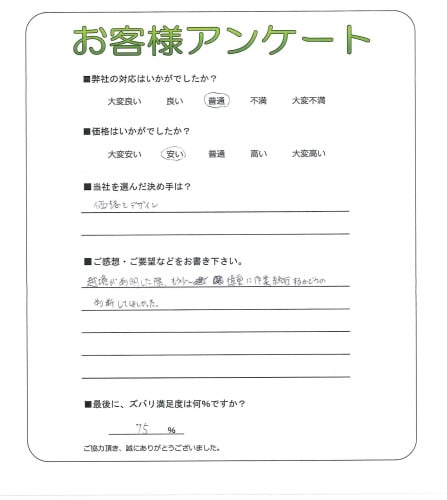 お客様アンケート
■弊社の対応はいかがでしたか？
大変良い 良い 普通 不満 大変不満
■価格はいかがでしたか？
大変安い 安い 普通 高い 大変高い
■当社を選んだ決め手は？
価格とデザイン
■ご感想・ご要望などをお書き下さい。
越境が判明した際、もう少し 慎重に作業続行するかどうかの
判断してほしかった。
■最後に、ズバリ満足度は何％ですか？
75 ％
ご協力頂き、誠にありがとうございました。